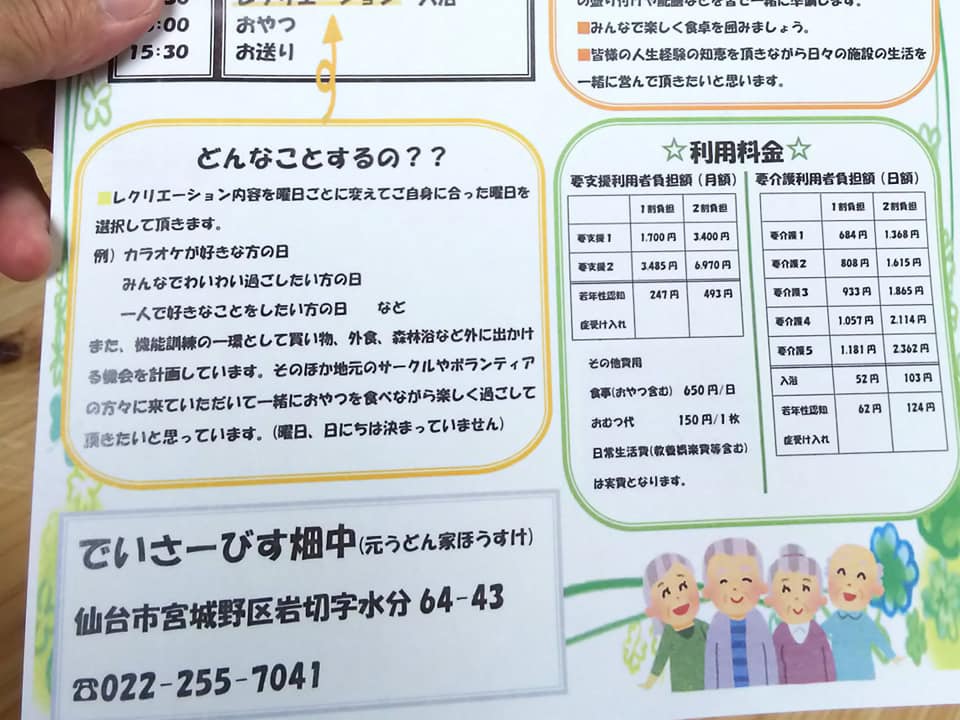 レクリエーション 入浴
:00 おやつ
15:30 お送り
の盛り付けや配膳などを皆で一緒に準備します。
■みんなで楽しく食卓を囲みましょう。
■皆様の人生経験の知恵を頂きながら日々の施設の生活を
一緒に営んで頂きたいと思います。
どんなことするの？？
■レクリエーション内容を曜日ごとに変えてご自身に合った曜日を
選択して頂きます。
例）カラオケが好きな方の日
みんなでわいわい過ごしたい方の日
一人で好きなことをしたい方の日　など
また、機能訓練の一環として買い物、外食、森林浴など外に出かけ
る機会を計画しています。そのほか地元のサークルやボランティア
の方々に来ていただいて一緒におやつを食べながら楽しく過ごして
頂きたいと思っています。(曜日、日にちは決まっていません)
☆利用料金☆
要支援利用者負担額（月額）
1割負担 2割負担
要支援1 1.700円 3.400円
要支援2 3.485円 6.970円
若年性認知 247円 493円
症受け入れ
その他費用
食事(おやつ含む) 650円/日
おむつ代 150円/1枚
日常生活費(教養娯楽費等含む)
は実費となります。
要介護利用者負担額（日額）
1割負担 2割負担
要介護1 684円 1.368円
要介護2 808円 1.615円
要介護3 933円 1.865円
要介護4 1.057円 2.114円
要介護5 1.181円 2.362円
入浴 52円 103円
若年性認知 62円 124円
症受け入れ
でいさーびす畑中(元うどん家ほうすけ)
仙台市宮城野区岩切字水分64-43
☎022-255-7041